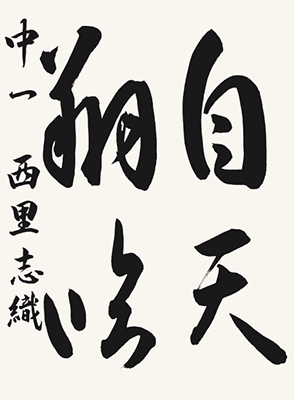 自天
翔臨
中一 西里志織